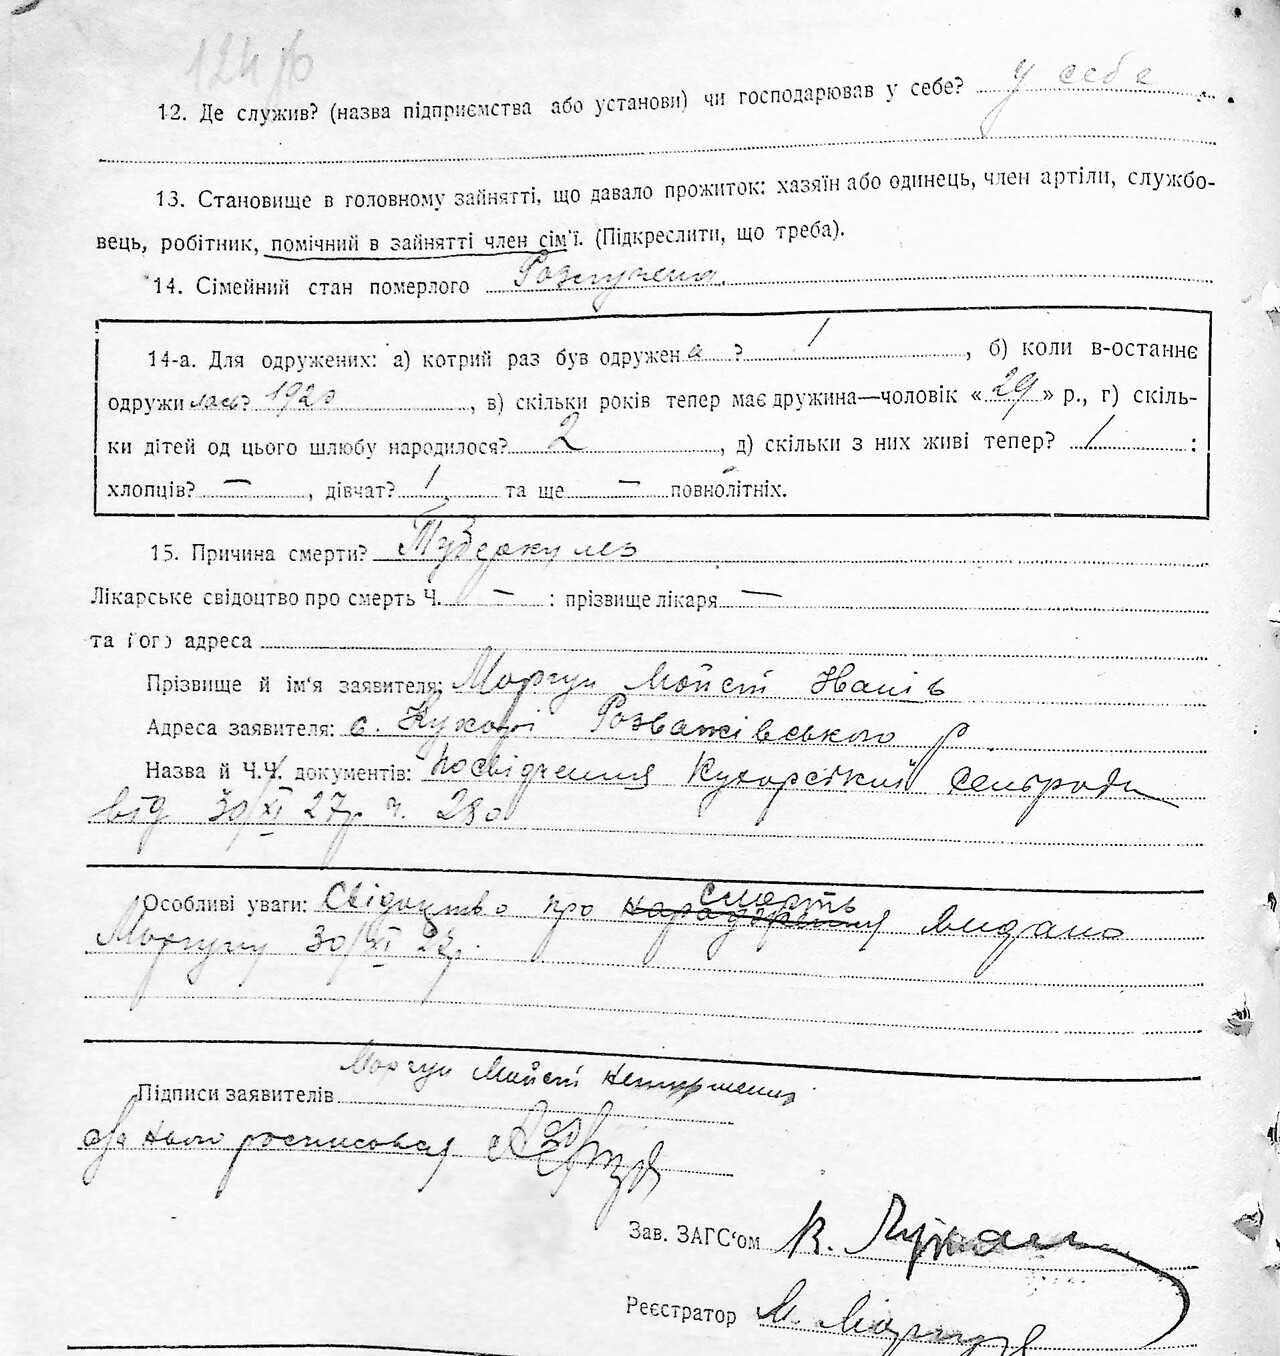 12. Де служив? (назва підприємства або установи) чи господарював у себе? у себе
13. Становище в головному зайнятті, що давало прожиток: хазяїн або одинець, член артіли, службо-
вець, робітник, помічний в зайнятті член сім'ї. (Підкреслити, що треба).
14. Сімейний стан померлого Розлучена
14-а. Для одружених: а) котрий раз був одружена ? 1, б) коли в-останнє
одружилась? 1920, в) скільки років тепер має дружина—чоловік «29» р., г) скіль-
ки дітей од цього шлюбу народилося? 2, д) скільки з них живі тепер? 1 :
хлопців? —, дівчат? 1, та ще — повнолітніх.
15. Причина смерти? Туберкулез
Лікарське свідоцтво про смерть Ч. — : прізвище лікаря —
та його адреса
Прізвище й ім'я заявителя: Моргун Мойсій Іванів
Адреса заявителя: с. Кухарі Розважівського р
Назва й Ч.Ч. документів: Посвідчення Кухарської сельради
від 30/XI 27р. ч. 280
Особливі уваги: Свідоцтво про народження смерть видано
Моргуну 30/XI 27р.
Підписи заявителів Моргун Мойсій неписьмений
за нього росписовся
Зав. ЗАГС'ом В.
Реєстратор М.